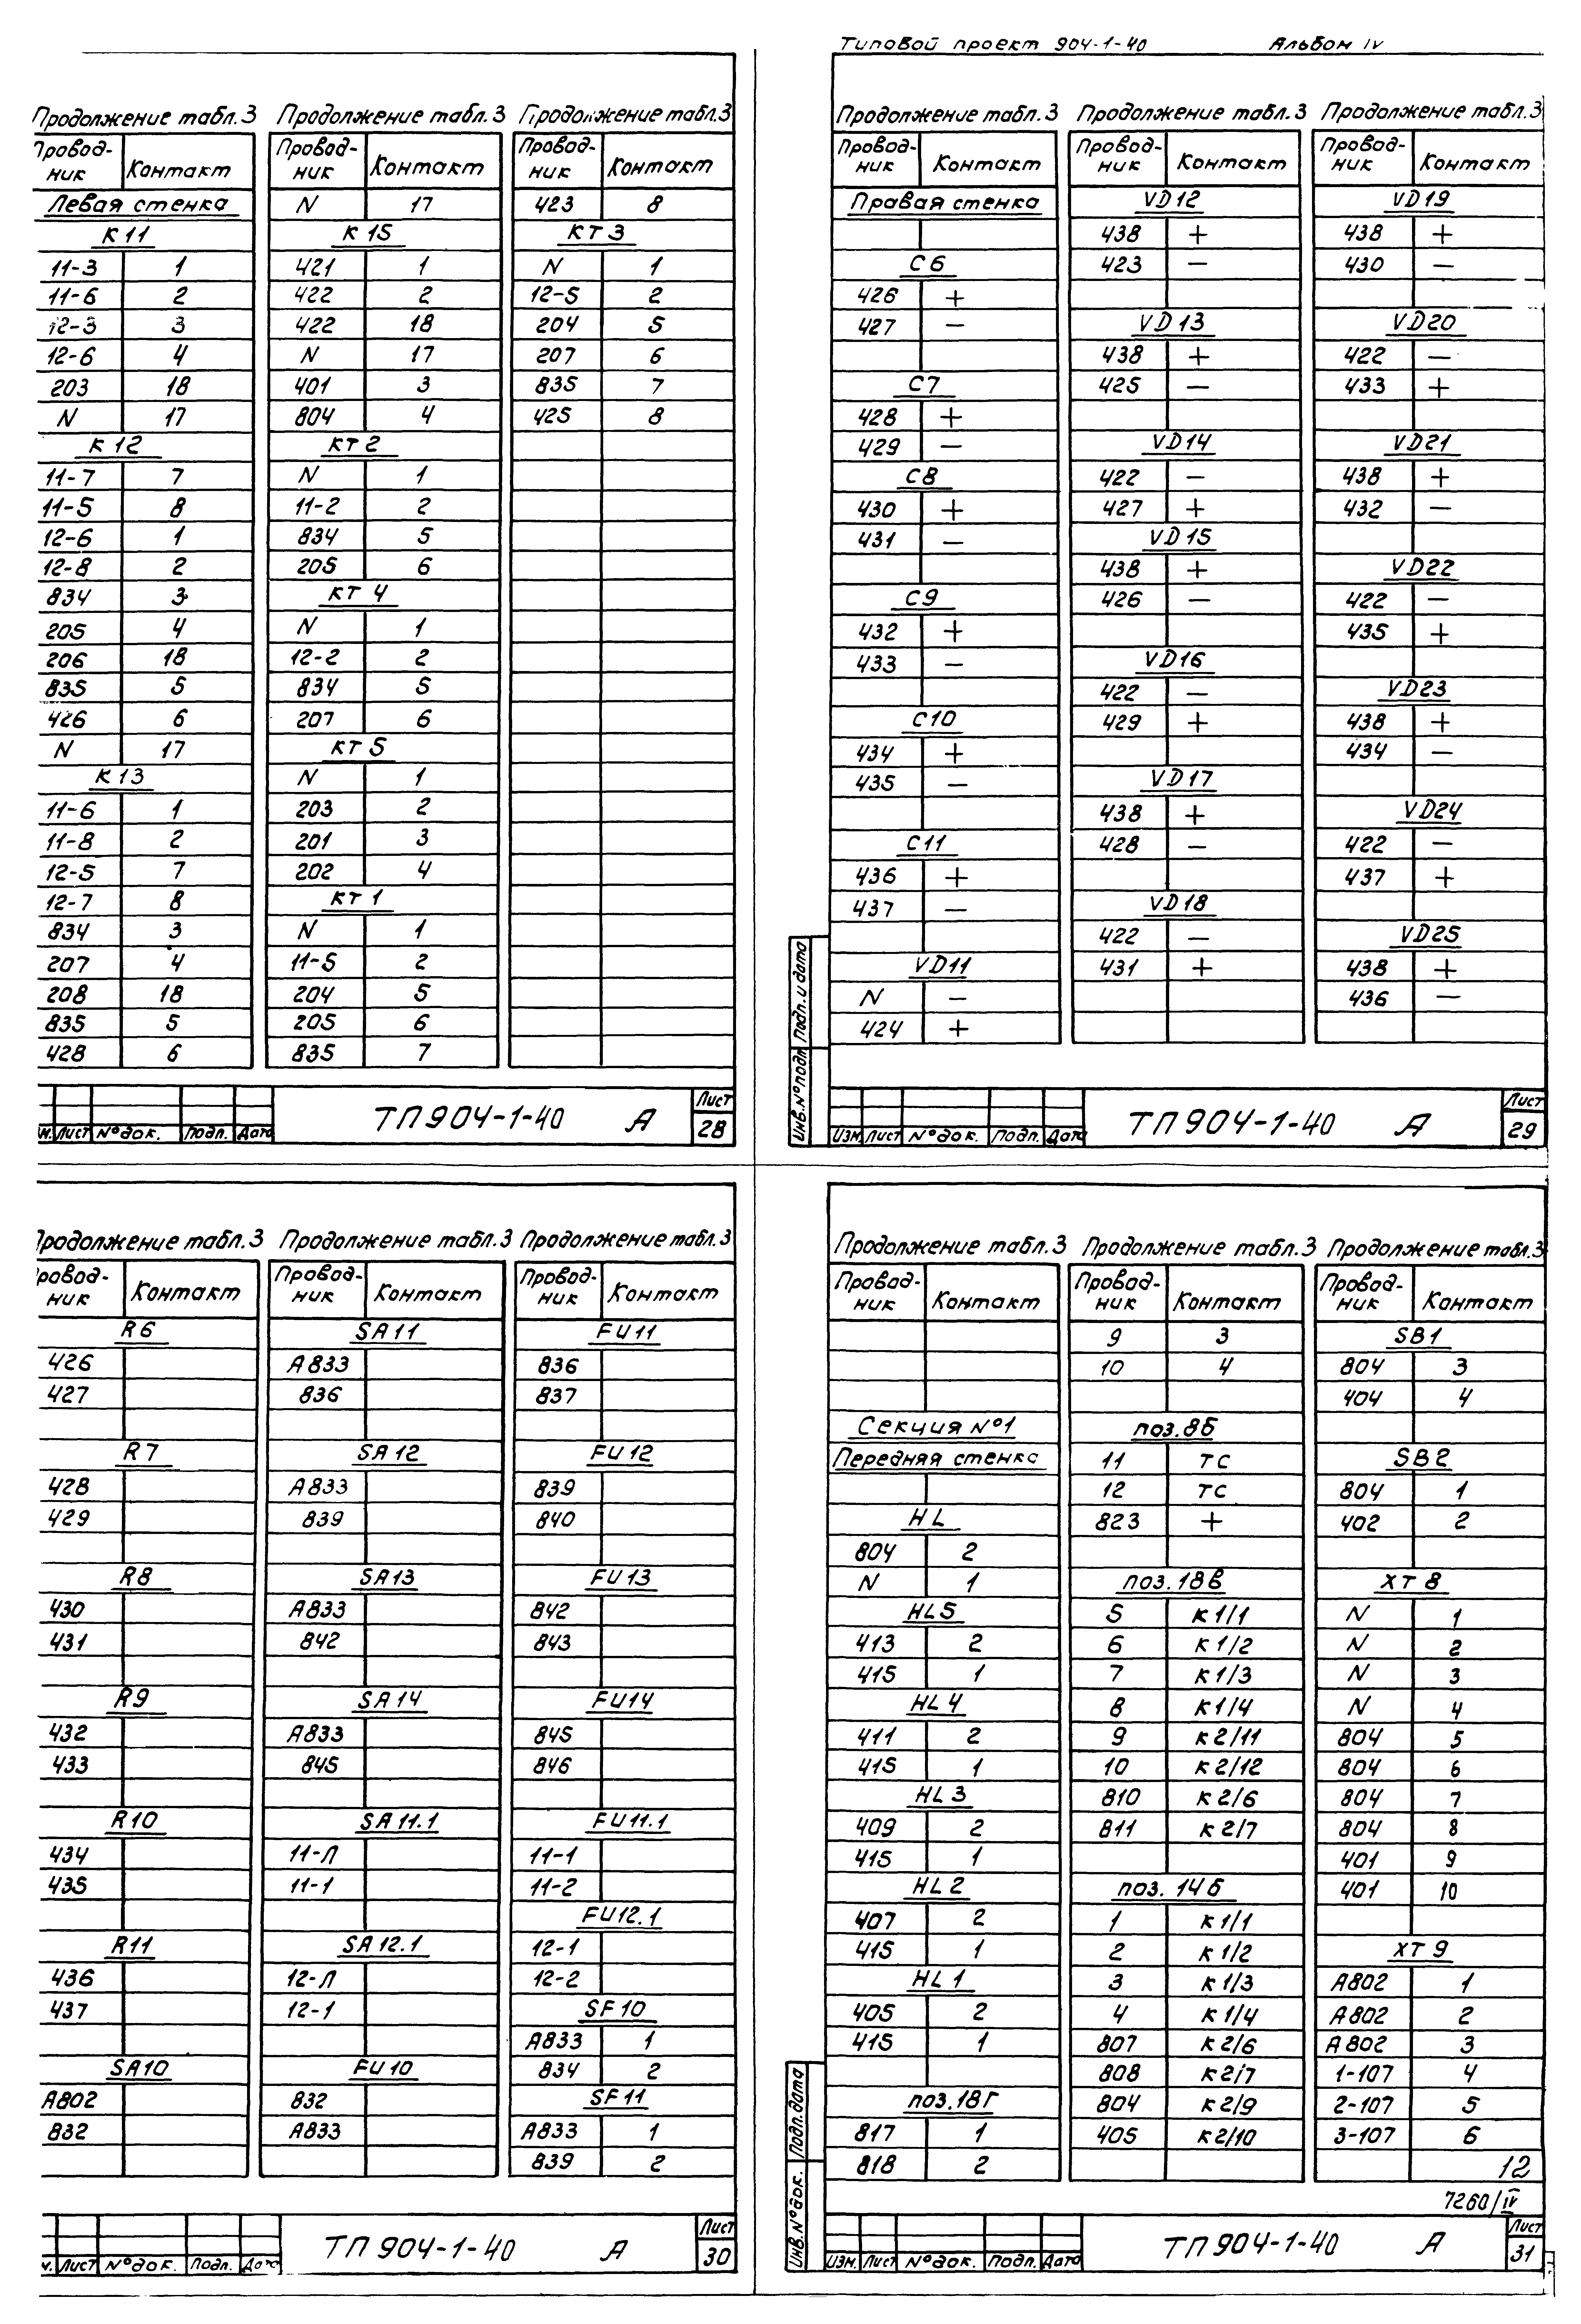 Типовой проект 904-1-40 Альбом IV
Продолжение табл.3
Провод-
ник Контакт
Левая стенка
К 11
11-3 1
11-6 2
12-3 3
12-6 4
203 18
N 17
К 12
11-7 7
11-5 8
12-6 1
12-8 2
834 3
205 4
206 18
835 5
426 6
N 17
К 13
11-6 1
11-8 2
12-5 7
12-7 8
834 3
207 4
208 18
835 5
428 6
Продолжение табл.3
Провод-
ник Контакт
N 17
К 15
421 1
422 2
422 18
N 17
401 3
804 4
КТ 2
N 1
11-2 2
834 5
205 6
КТ 4
N 1
12-2 2
834 5
207 6
КТ 5
N 1
203 2
201 3
202 4
КТ 1
N 1
11-5 2
204 5
205 6
835 7
Продолжение табл.3
Провод-
ник Контакт
423 8
КТ 3
N 1
12-5 2
204 5
207 6
835 7
425 8
Лист № док. Подп. Дата
ТП 904-1-40 А
Лист
28
Продолжение табл.3
Провод-
ник Контакт
Правая стенка
С 6
426 +
427 −
С7
428 +
429 −
С8
430 +
431 −
С9
432 +
433 −
С10
434 +
435 −
С11
436 +
437 −
VD11
N −
424 +
Продолжение табл.3
Провод-
ник Контакт
VD12
438 +
423 −
VD13
438 +
425 −
VD14
422 −
427 +
VD15
438 +
426 −
VD16
422 −
429 +
VD17
438 +
428 −
VD18
422 −
431 +
Продолжение табл.3
Провод-
ник Контакт
VD19
438 +
430 −
VD20
422 −
433 +
VD21
438 +
432 −
VD22
422 −
435 +
VD23
438 +
434 −
VD24
422 −
437 +
VD25
438 +
436 −
Инв.№ подл Подп. и дата
Изм Лист № док. Подп. Дата
ТП 904-1-40 А
Лист
29
Продолжение табл.3
Провод-
ник Контакт
R6
426
427
R7
428
429
R8
430
431
R9
432
433
R10
434
435
R11
436
437
SA10
А802
832
Продолжение табл.3
Провод-
ник Контакт
SA11
А833
836
SA12
А833
839
SA13
А833
842
SA14
А833
845
SA11.1
11-Л
11-1
SA12.1
12-Л
12-1
FU10
832
А833
Продолжение табл.3
Провод-
ник Контакт
FU11
836
837
FU12
839
840
FU13
842
843
FU14
845
846
FU11.1
11-1
11-2
FU12.1
12-1
12-2
SF10
А833 1
834 2
SF11
А833 1
839 2
Лист № док. Подп. Дата
ТП 904-1-40 А
Лист
30
Продолжение табл.3
Провод-
ник Контакт
Секция №1
Передняя стенка
HL
804 2
N 1
HL5
413 2
415 1
HL4
411 2
415 1
HL3
409 2
415 1
HL2
407 2
415 1
HL1
405 2
415 1
поз.18г
817 1
818 2
Продолжение табл.3
Провод-
ник Контакт
9 3
10 4
поз.8б
11 ТС
12 ТС
823 +
поз.18в
5 К1/1
6 К1/2
7 К1/3
8 К1/4
9 К2/11
10 К2/12
810 К2/6
811 К2/7
поз. 14б
1 К1/1
2 К1/2
3 К1/3
4 К1/4
807 К2/6
808 К2/7
804 К2/9
405 К2/10
Продолжение табл.3
Провод-
ник Контакт
SB1
804 3
404 4
SB2
804 1
402 2
ХТ 8
N 1
N 2
N 3
N 4
804 5
804 6
804 7
804 8
401 9
401 10
ХТ 9
А802 1
А802 2
А802 3
1-107 4
2-107 5
3-107 6
12
7260/IV
Инв.№ док. Подп. дата
Изм. Лист № док. Подп. Дата
ТП 904-1-40 А
Лист
31